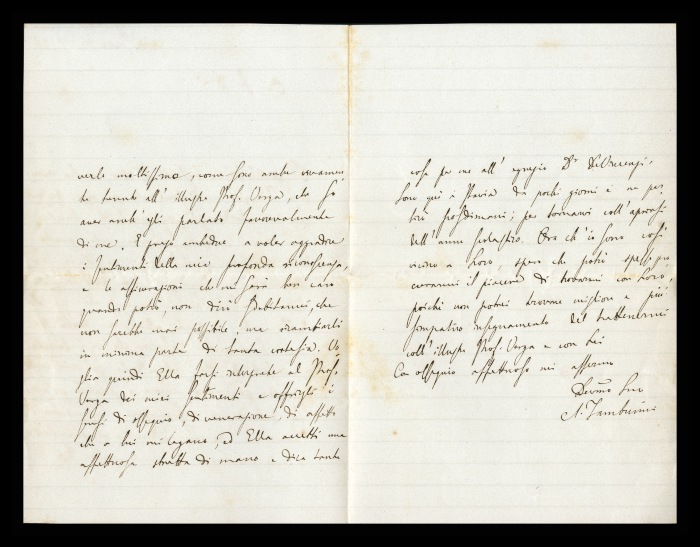 verle moltissimo, come sono anche vivamen
te tenuto all' illustre Prof. Verga, che Le
aveva anch' egli parlato favorevolmente
di me. E prego ambedue a voler aggradire
i sentimenti della mia profonda riconoscenza,
e le assicurazioni che mi sarà ben caro
quando potrò, non dirò sdebitarmi, che
non sarebbe mai possibile, ma ricambiarli
in minima parte di tanta cortesia. Vo
glia quindi Ella farsi interprete al Prof.
Verga dei miei sentimenti e offrirgli i
sensi di ossequio, di venerazione, di affetto
che a lui mi legano, ed Ella accetti una
affettuosa stretta di mano e dica tante
cose per me all' egregio Dr. DeVincenzi.
Sono qui a Pavia da pochi giorni e ne par
tirò posdimani; per tornarvi coll'aprirsi
dell' anno scolastico. Ora ch' io sono così
vicino a Loro, spero che potrò spesso pro
curarmi il piacere di trovarmi con Loro,
poichè non potrei trovare migliore e più
simpatico insegnamento del trattenermi
coll' illustre Prof. Verga e con Lei
Con ossequio affettuoso mi affermo
Devmo Suo
A. Tamburini